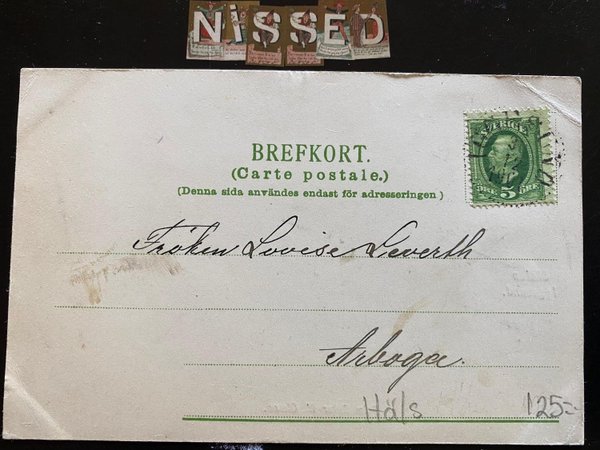 NiSSED
BREFKORT.
(Carte postale.)
(Denna sida användes endast för adresseringen)
SVERIGE
5
Fröken Lovise Leverth
Arboga.
Häls
125=